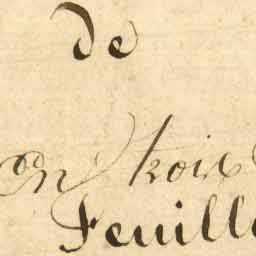 de
en trois
Feuille